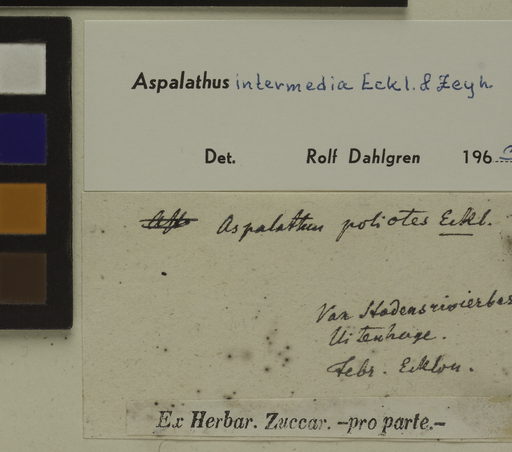 Aspalathus intermedia Eckl. & Zeyh.
Det. Rolf Dahlgren 196
Aspalathus poliotes Eckl.
Van Stadensrivierber
Uitenhage.
Febr. Ecklon.
Ex Herbar. Zuccar. –pro parte.–